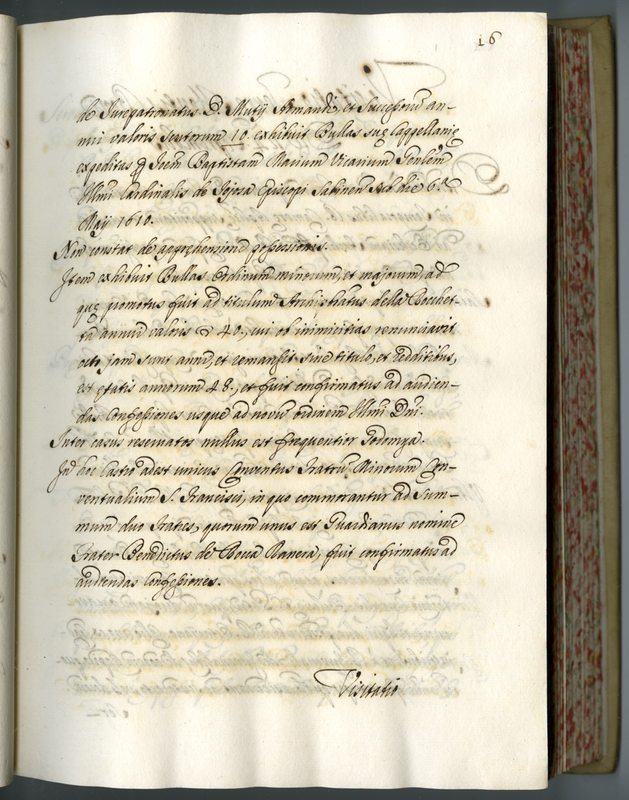 16
de Jurepatronatus D. Mutij Armandi, et Successorũ an-
nui valoris scutorum 10. exhibuit Bullas suę Cappellanię
expeditas ꝑ Joem Baptistam Vicarium Genlem
Illmi Cardinalis de Episcopi Sabinen sub die 6.ª
Maij 1610.
Non constat de apprehensione possessionis.
Item exhibuit Bullas Ordinum minorum, et majorum, ad
quę promotus fuit ad titulum Archipbratus della Rocchet-
ta annui valoris 40., cui ob inimicitias renunciavit
octo jam sunt anni, et remansit sine titulo, et redditibus,
est ętatis annorum 48., et fuit confirmatus ad audien-
das Confessiones usque ad novũ ordinem Illmi Dni.
Inter casus reservatos nullus est frequentior
In hoc Castro adest unicus Conventus fratrũ Minorum Con-
ventualium S. Francisci, in quo commorantur ad sum-
mum duo fratres, quorum unus est Guardianus nomine
frater Bendictus de Rocca Ranera, fuit confirmatus ad
audiendas Confessiones.
Visitatio